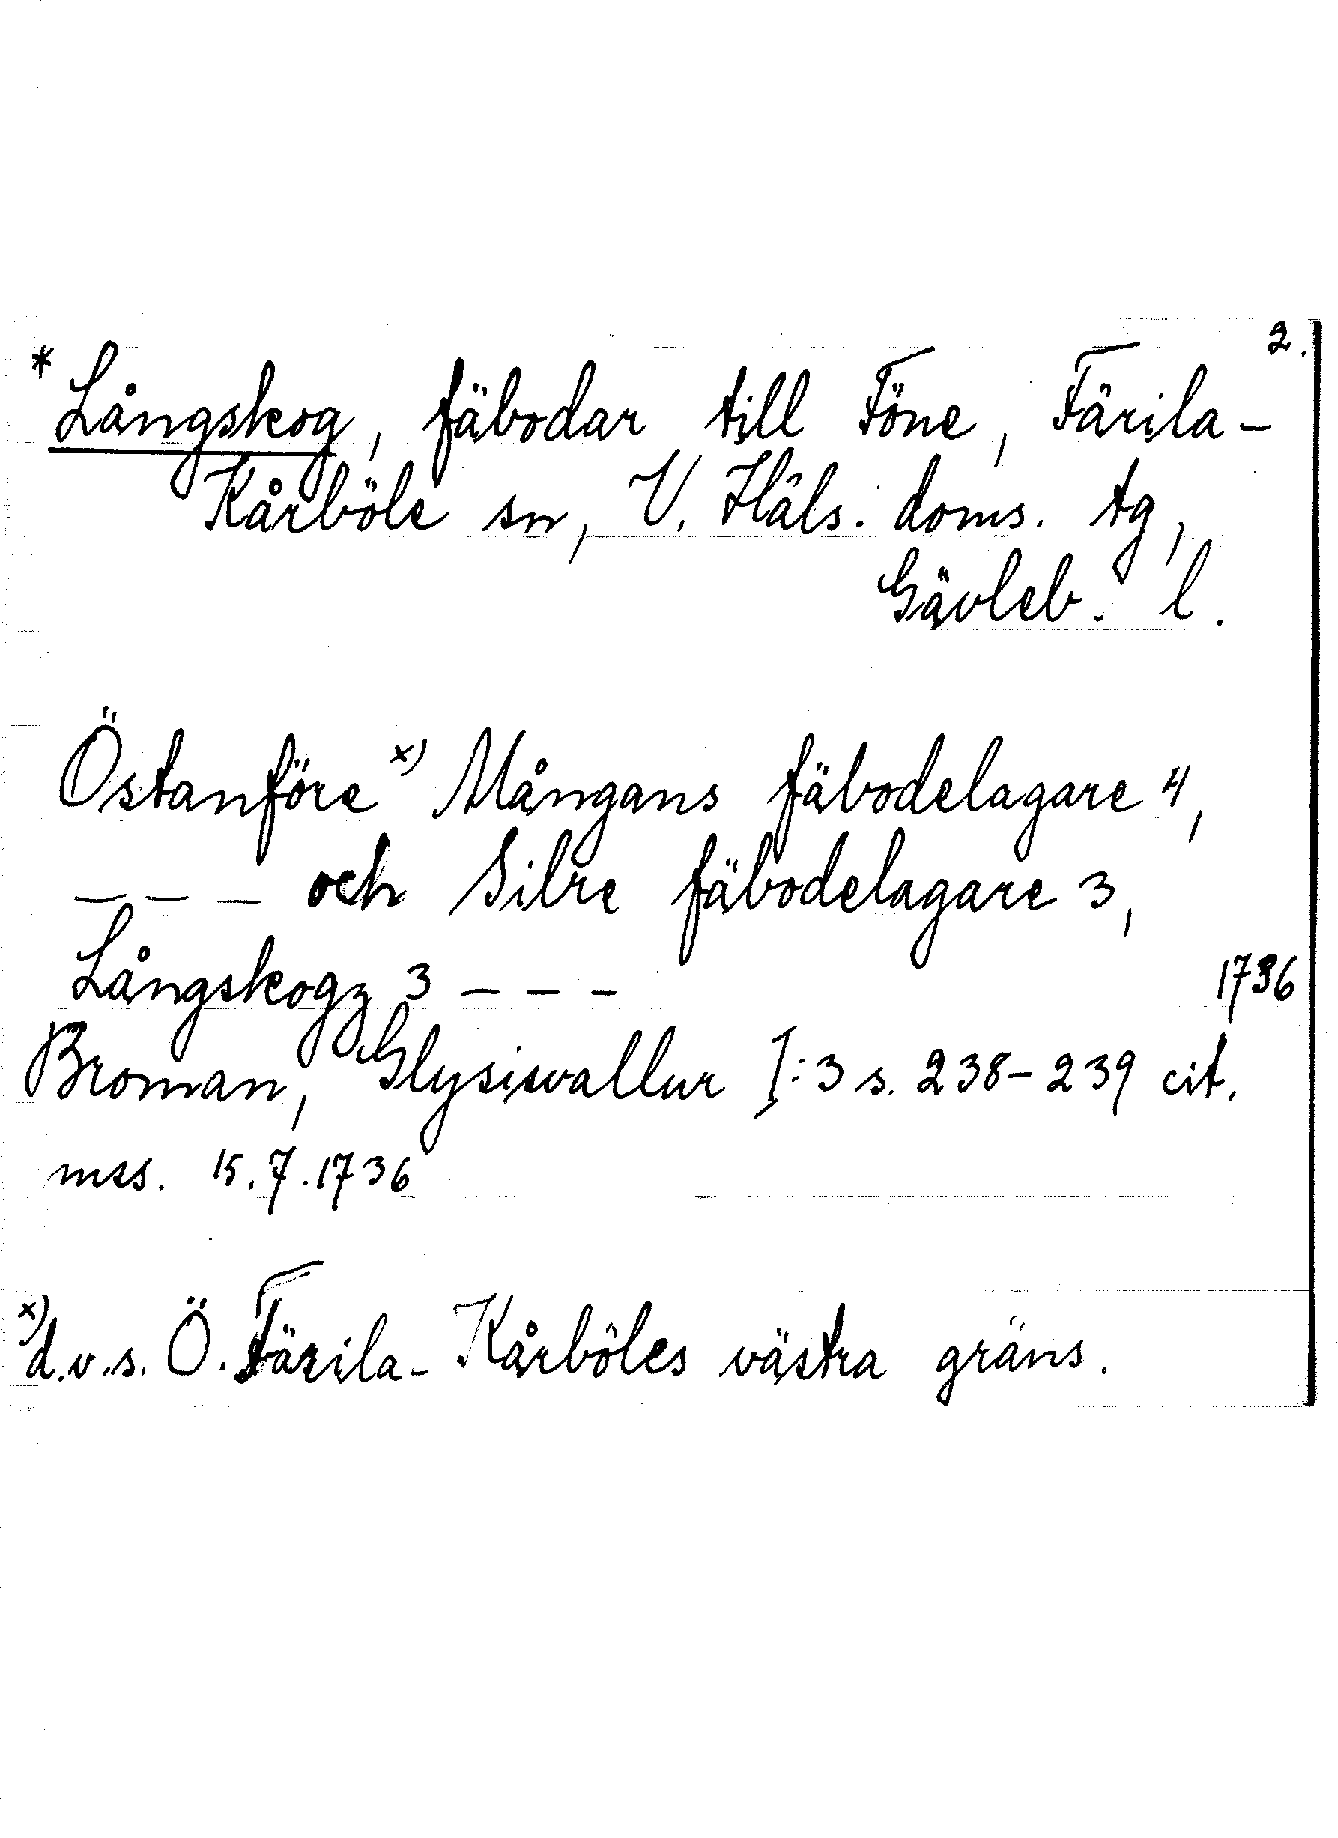 2.
* Långskog, fäbodar till Föne, Färila-
Kårböle sn, V. Häls. doms. tg,
Gävleb. l.
Östanföre x) Mångans fäbodelagare 4,
– – – och Silre fäbodelagare 3,
Långskogz 3 – – – 1736
Broman, Glysisvallur I:3 s. 238–239 cit.
mss. 15.7.1736
x) d.v.s. Ö. Färila-Kårböles västra gräns.